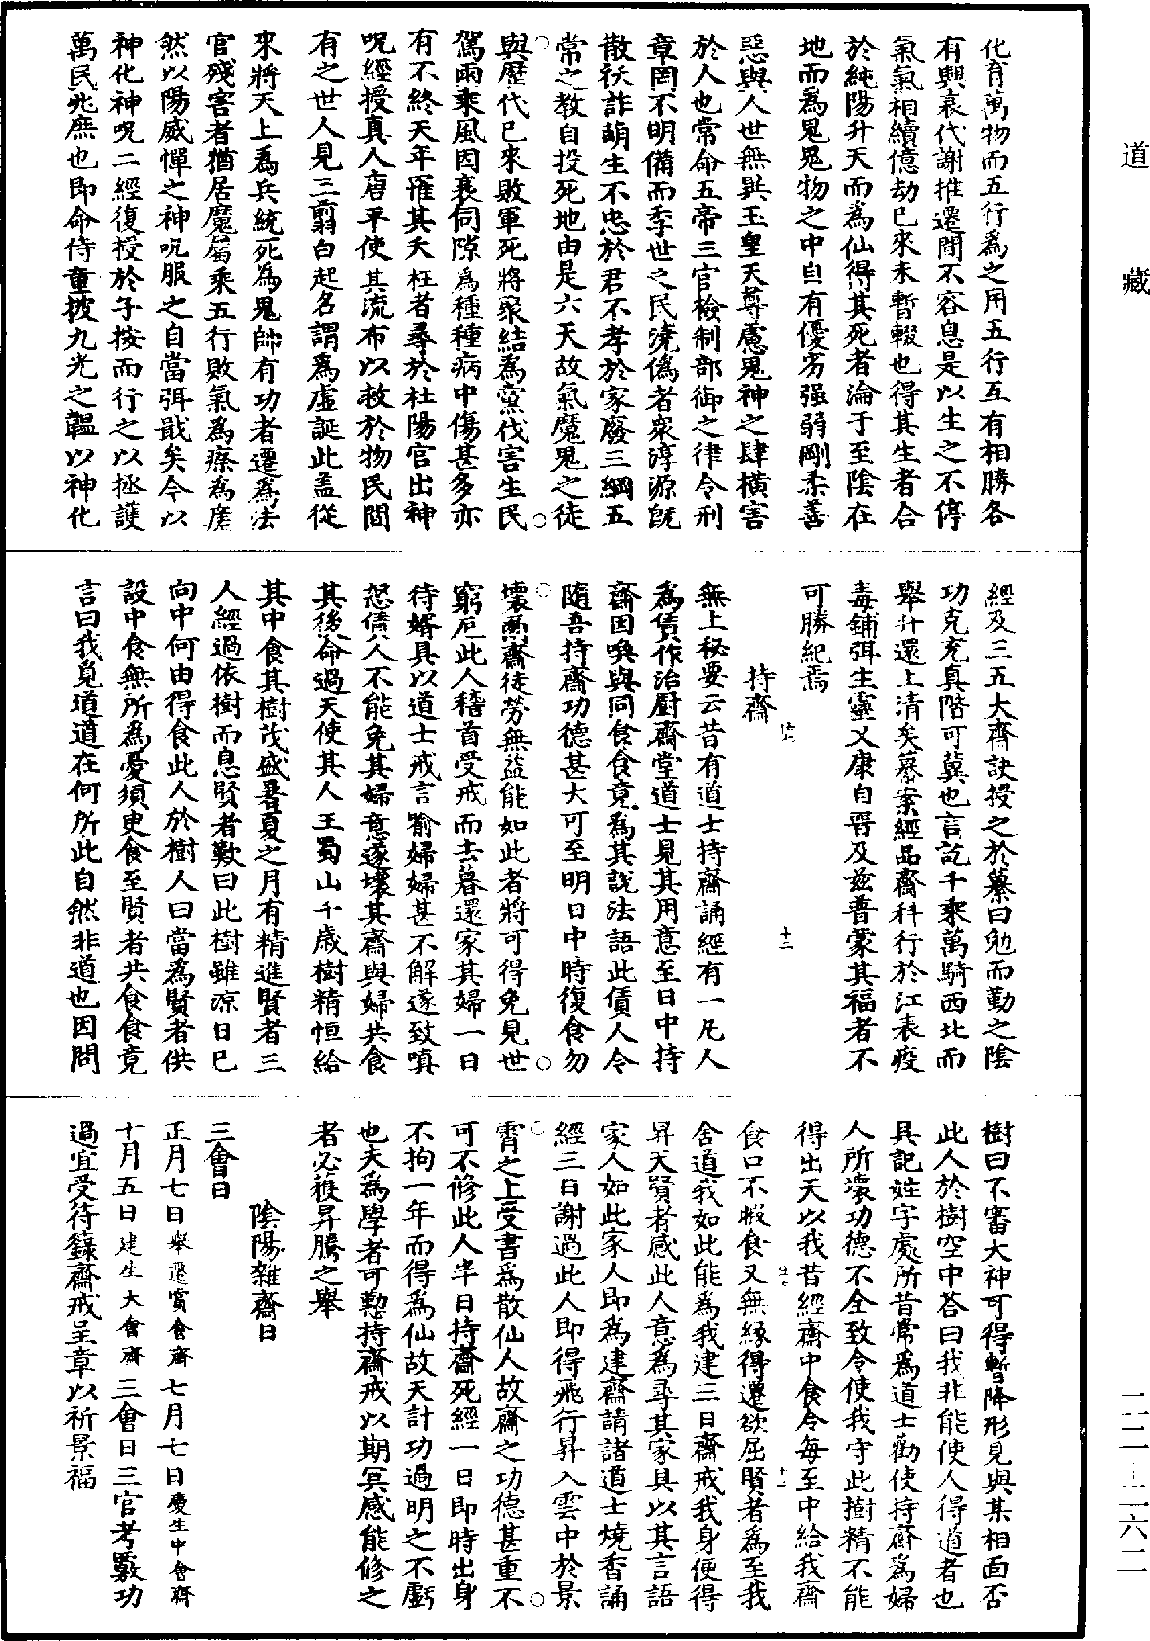 道藏
二二—二六二
化育萬物而五行爲之用五行互有相勝各
有興衰代謝推遷間不容息是以生之不停
氣氣相續億劫已來未暫輟也得其生者合
於純陽升天而為仙得其死者淪于至陰在
地而爲鬼鬼物之中自有優劣强弱剛柔善
惡與人世無異玉皇天尊慮鬼神之肆橫害
於人也常命五帝三官檢制部御之律令刑
章罔不明備而季世之民澆僞者衆淳源旣
散祅詐萌生不忠於君不孝於家廢三綱五
常之教自投死地由是六天故氣魔鬼之徒
與歷代已來敗軍死將聚結爲黨伐害生民
駕雨乘風因衰伺隙為種種病中傷甚多亦
有不終天年罹其夭枉者尋於杜陽官出神
呪經授真人唐平使其流布以救於物民間
有之世人見三翦白起名謂爲虛誕此盖從
來將天上爲兵統死為鬼帥有功者遷爲法
官殘害者猶居魔屬乘五行敗氣為瘵為㾮
然以陽威憚之神呪服之自當弭戢矣今以
神化神呪二經復授於子按而行之以拯護
萬民兆庶也即命侍童披九光之韞以神化
經及三五大齋訣授之於纂曰勉而勤之陰
功克充真階可冀也言訖千乘萬騎西北而
舉升還上清矣纂案經品齋科行於江表疫
毒鋪弭生靈乂康自晉及兹普蒙其福者不
可勝紀焉
持齋
無上秘要云昔有道士持齋誦經有一凡人
為賃作治厨齋堂道士見其用意至日中持
齋因喚與同食食竟為其說法語此賃人令
隨吾持齋功德甚大可至明日中時復食勿
壞爾齋徒勞無益能如此者將可得免見世
窮厄此人稽首受戒而去暮還家其婦一日
待婿具以道士戒言喻婦婦甚不解遂致嗔
怒債人不能免其婦意遂壞其齋與婦共食
其後命過天使其人王蜀山千歲樹精恒給
其中食其樹茂盛暑夏之月有精進賢者三
人經過依樹而息賢者歎曰此樹雖凉日已
向中何由得食此人於樹人曰當為賢者供
設中食無所為憂須臾食至賢者共食食竟
言曰我覓道道在何所此自然非道也因問
樹曰不審大神可得暫降形見與某相面否
此人於樹空中答曰我非能使人得道者也
具記姓字處所昔常爲道士勸使持齋為婦
人所壞功德不全致令使我守此樹精不能
得出天以我昔經齋中食令每至中給我齋
食口不暇食又無縁得遷欲屈賢者為至我
舍道我如此能為我建三日齋戒我身便得
昇天賢者感此人意為尋其家具以其言語
家人如此家人即為建齋請諸道士燒香誦
經三日謝過此人即得飛行昇入雲中於景
霄之上受書爲散仙人故齋之功德甚重不
可不修此人半日持齋死經一日即時出身
不拘一年而得為仙故天計功過明之不虧
也夫為學者可懃持齋戒以期冥感能修之
者必獲昇騰之舉
陰陽雜齋日
三會日
正月七日舉遷賞會齋七月七日慶生中會齋
十月五日建生大會齋三會日三官考覈功
過宜受符籙齋戒呈章以祈景福